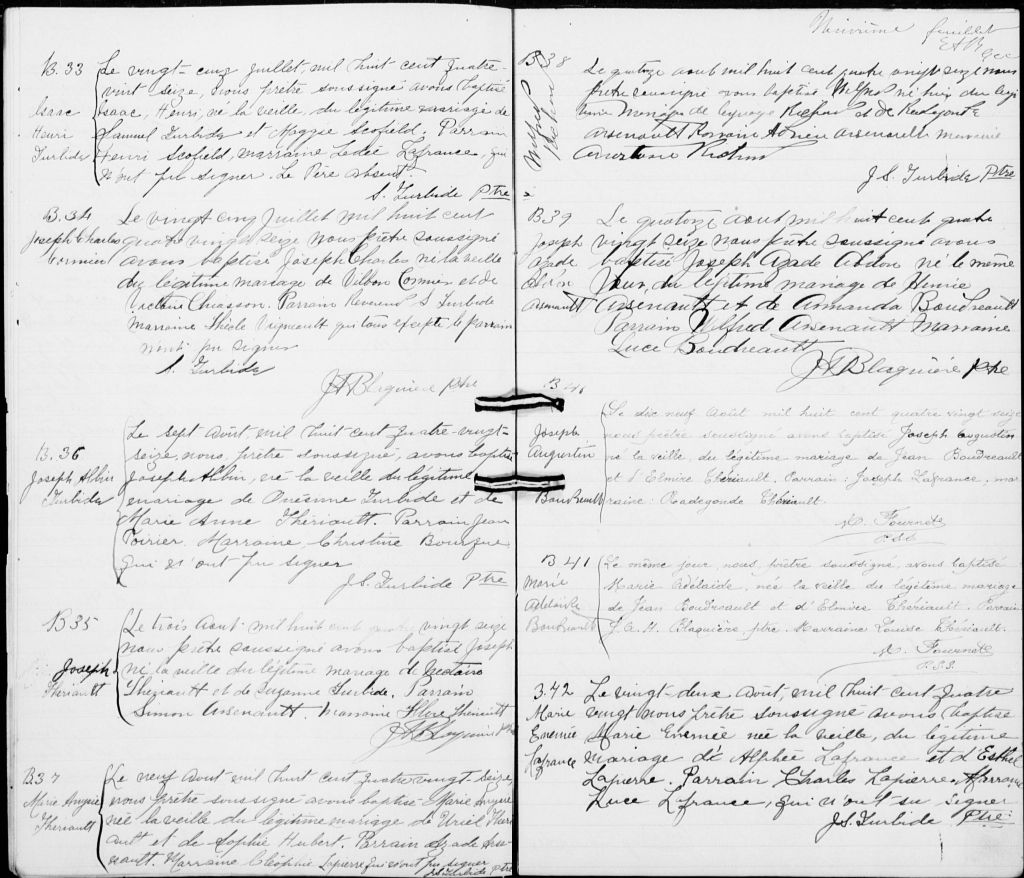 B. 33
Isaac
Henri
Turbide
Le vingt-cinq juillet, mil huit cent quatre-
vint seize, nous prêtre soussigné avons baptisé
Isaac, Henri, né la veille, du légitime mariage de
Samuel Turbide et Maggie Scofield. Parrain
Henri Scofield, marraine Ledée Lafrance qui
n'ont pu signer. Le Père absent.
S. Turbide Ptre
B. 34
Joseph Charles
Cormier
Le vingt cinq juillet mil huit cent
quatre vingt seize nous prêtre soussigné
avons baptisé Joseph Charles né la veille
du légitime mariage de Vilbon Cormier et de
Victoire Chiasson. Parrain Reverend S Turbide
Marraine Vigneault qui tous excepté le parrain
n'ont pu signer
S. Turbide
J A Blaquière ptre
B. 36
Joseph Albin
Turbide
Le sept Août, mil huit cent quatre-vingt-
seize, nous, prêtre soussigné, avons baptisé
Joseph Albin, né la veille du légitime
mariage de Onésime Turbide et de
Marie Anne Thériault. Parrain Jean
Poirier. Marraine, Christine Bourque
qui n'ont pu signer
J. S. Turbide Ptre
B 35
Joseph
Thériault
Le trois Aout mil huit cent quatre vingt seize
nous prêtre soussigné avons baptisé Joseph
né la veille du légitime mariage de
Thériault et de Suzanne Turbide. Parrain
Simon Arsenault. Marraine Thériault
J A Blaquière Ptre
B 37
Marie
Thériault
Le neuf Aout mil huit cent quatre vingt-seize,
nous prêtre soussigné avons baptisé Marie
née la veille du légitime mariage de Uriel Théri-
ault et de Sophie Hubert. Parrain Azade Arse-
nault. Marraine Cléophie Lapierre qui n'ont pu signer
J. S. Turbide Ptre
Neuvième feuillet
B 38
Le quatorze aout mil huit cent quatre vingt seize nous
prêtre soussigné avons baptisé né hier du légi
time mariage de et de Radegonde
Arsenault Parrain Arsenault marraine
J. S. Turbide Ptre
B 39
Joseph
Azade
Abdon
Arsenault
Le quatorze aout mil huit cent quatre
vingt seize nous prêtre soussigné avons
baptisé Joseph Azade Abdon né le même
jour, du légitime mariage de Henrie
Arsenault et de Armanda Boudreault
Parrain Wilfred Arsenault Marraine
Luce Boudreault
J A Blaquière ptre
B 41
Joseph
Augustin
Boudreault
Le dix neuf Août mil huit cent quatre vingt seize
nous prêtre soussigné avons baptisé Joseph Augustin
né la veille, du légitime mariage de Jean Boudreault
et d'Elmire Thériault. Parrain: Joseph Lafrance, mar-
raine: Radegonde Thériault.
P.S.S.
B 41
Marie
Adelaide
Boudreault
Le même jour, nous, prêtre soussigné, avons baptisé
Marie Adelaide, née la veille du légitime mariage
de Jean Boudreault et d'Elmire Thériault. Parrain
J. A. H. Blaquière, ptre. Marraine Louise Thériault.
P.S.S.
B. 42
Marie
Evemée
Lafrance
Le vingt-deux Aout, mil huit cent quatre
vingt nous prêtre soussigné avons baptisé
Marie Evemée née la veille, du légitime
mariage d'Alphée Lafrance et d'Esthel
Lapierre. Parrain Charles Lapierre, Marraine
Luce Lafrance, qui n'ont su signer
J. S. Turbide Ptre